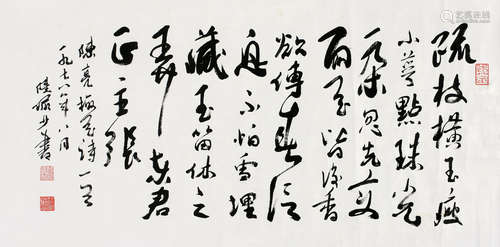 疏枝橫玉瘦
小萼點珠光
一朵忽先变
百花皆後香
欲傳春信
息不怕雪埋
藏玉笛休三
弄东君
正主張
陳亮梅花诗一首
一九七八年八月
陸儼少書